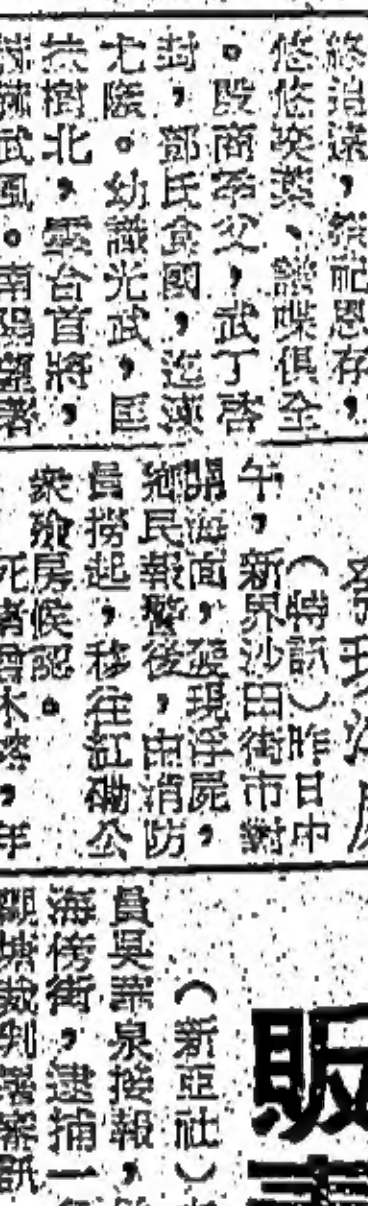 終追遠，祭祀恩存，
悠悠奕葉、譜牒俱全
。殷商季父，武丁啓
封，鄧氏食國，迄漢
尤隆。幼識光武，匡
扶樹北，雲台首將，
武風。南陽望著
發現浮屍
（特訊）昨日中
午，新界沙田街市對
開海面，發現浮屍，
鄉民報警後，由消防
員撈起，移往紅磡公
衆殮房候認。
死者曾木
，年
販毒
（新亞社）
員吳 泉接報，
海傍街，逮捕一
觀塘裁判署審訊